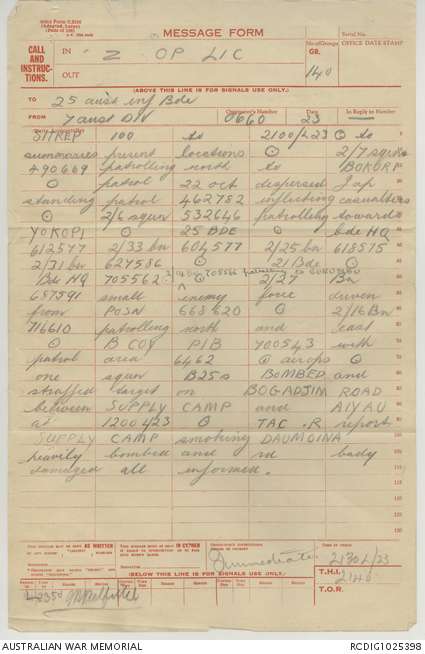 MESSAGE FORM
Serial No.
CALL AND INSTRUC- TIONS.
IN Z OP LIC
OUT
No. of Groups GR. 140
OFFICE DATE STAMP
(ABOVE THIS LINE IS FOR SIGNALS USE ONLY.)
TO 25 aust inf Bde
FROM 7 aust Div
Originator's Number 0660
Date 23
In Reply to Number
SITREP 100 to 2100L/23 ⊙ to
summaries present locations ⊙ 2/7 sqn
490669 patrolling north to BOKORP
⊙ patrol 22 oct dispersed Jap
standing patrol 462782 inflicting casualties
⊙ 2/6 sqn 532646 patrolling towards
YOKOPI ⊙ 25 BDE ⊙ bde HQ
612577 2/33 bn 604577 2/25 bn 618575
2/31 bn 627586 ⊙ 21 Bde ⊙
Bde HQ 705562 705566 patrolling to 2/27 Bn
657591 small enemy force driven
from POSN 668620 ⊙ 2/16 Bn
716610 patrolling north and east
⊙ B COY PIB 700543 with
patrol area 6462 ⊙ airops ⊙
one sqn B25s BOMBED and
strafed target on BOGADJIM ROAD
between SUPPLY CAMP and AIYAU
at 1200L/23 ⊙ TAC .R report
SUPPLY CAMP smoking DAUMOINA
heavily bombed and rd badly
damaged all informed.
Immediate
2130L/23
(BELOW THIS LINE IS FOR SIGNALS USE ONLY.)
T.H.I. 2140
T.O.R.
2350
AUSTRALIAN WAR MEMORIAL
RCDIG1025398